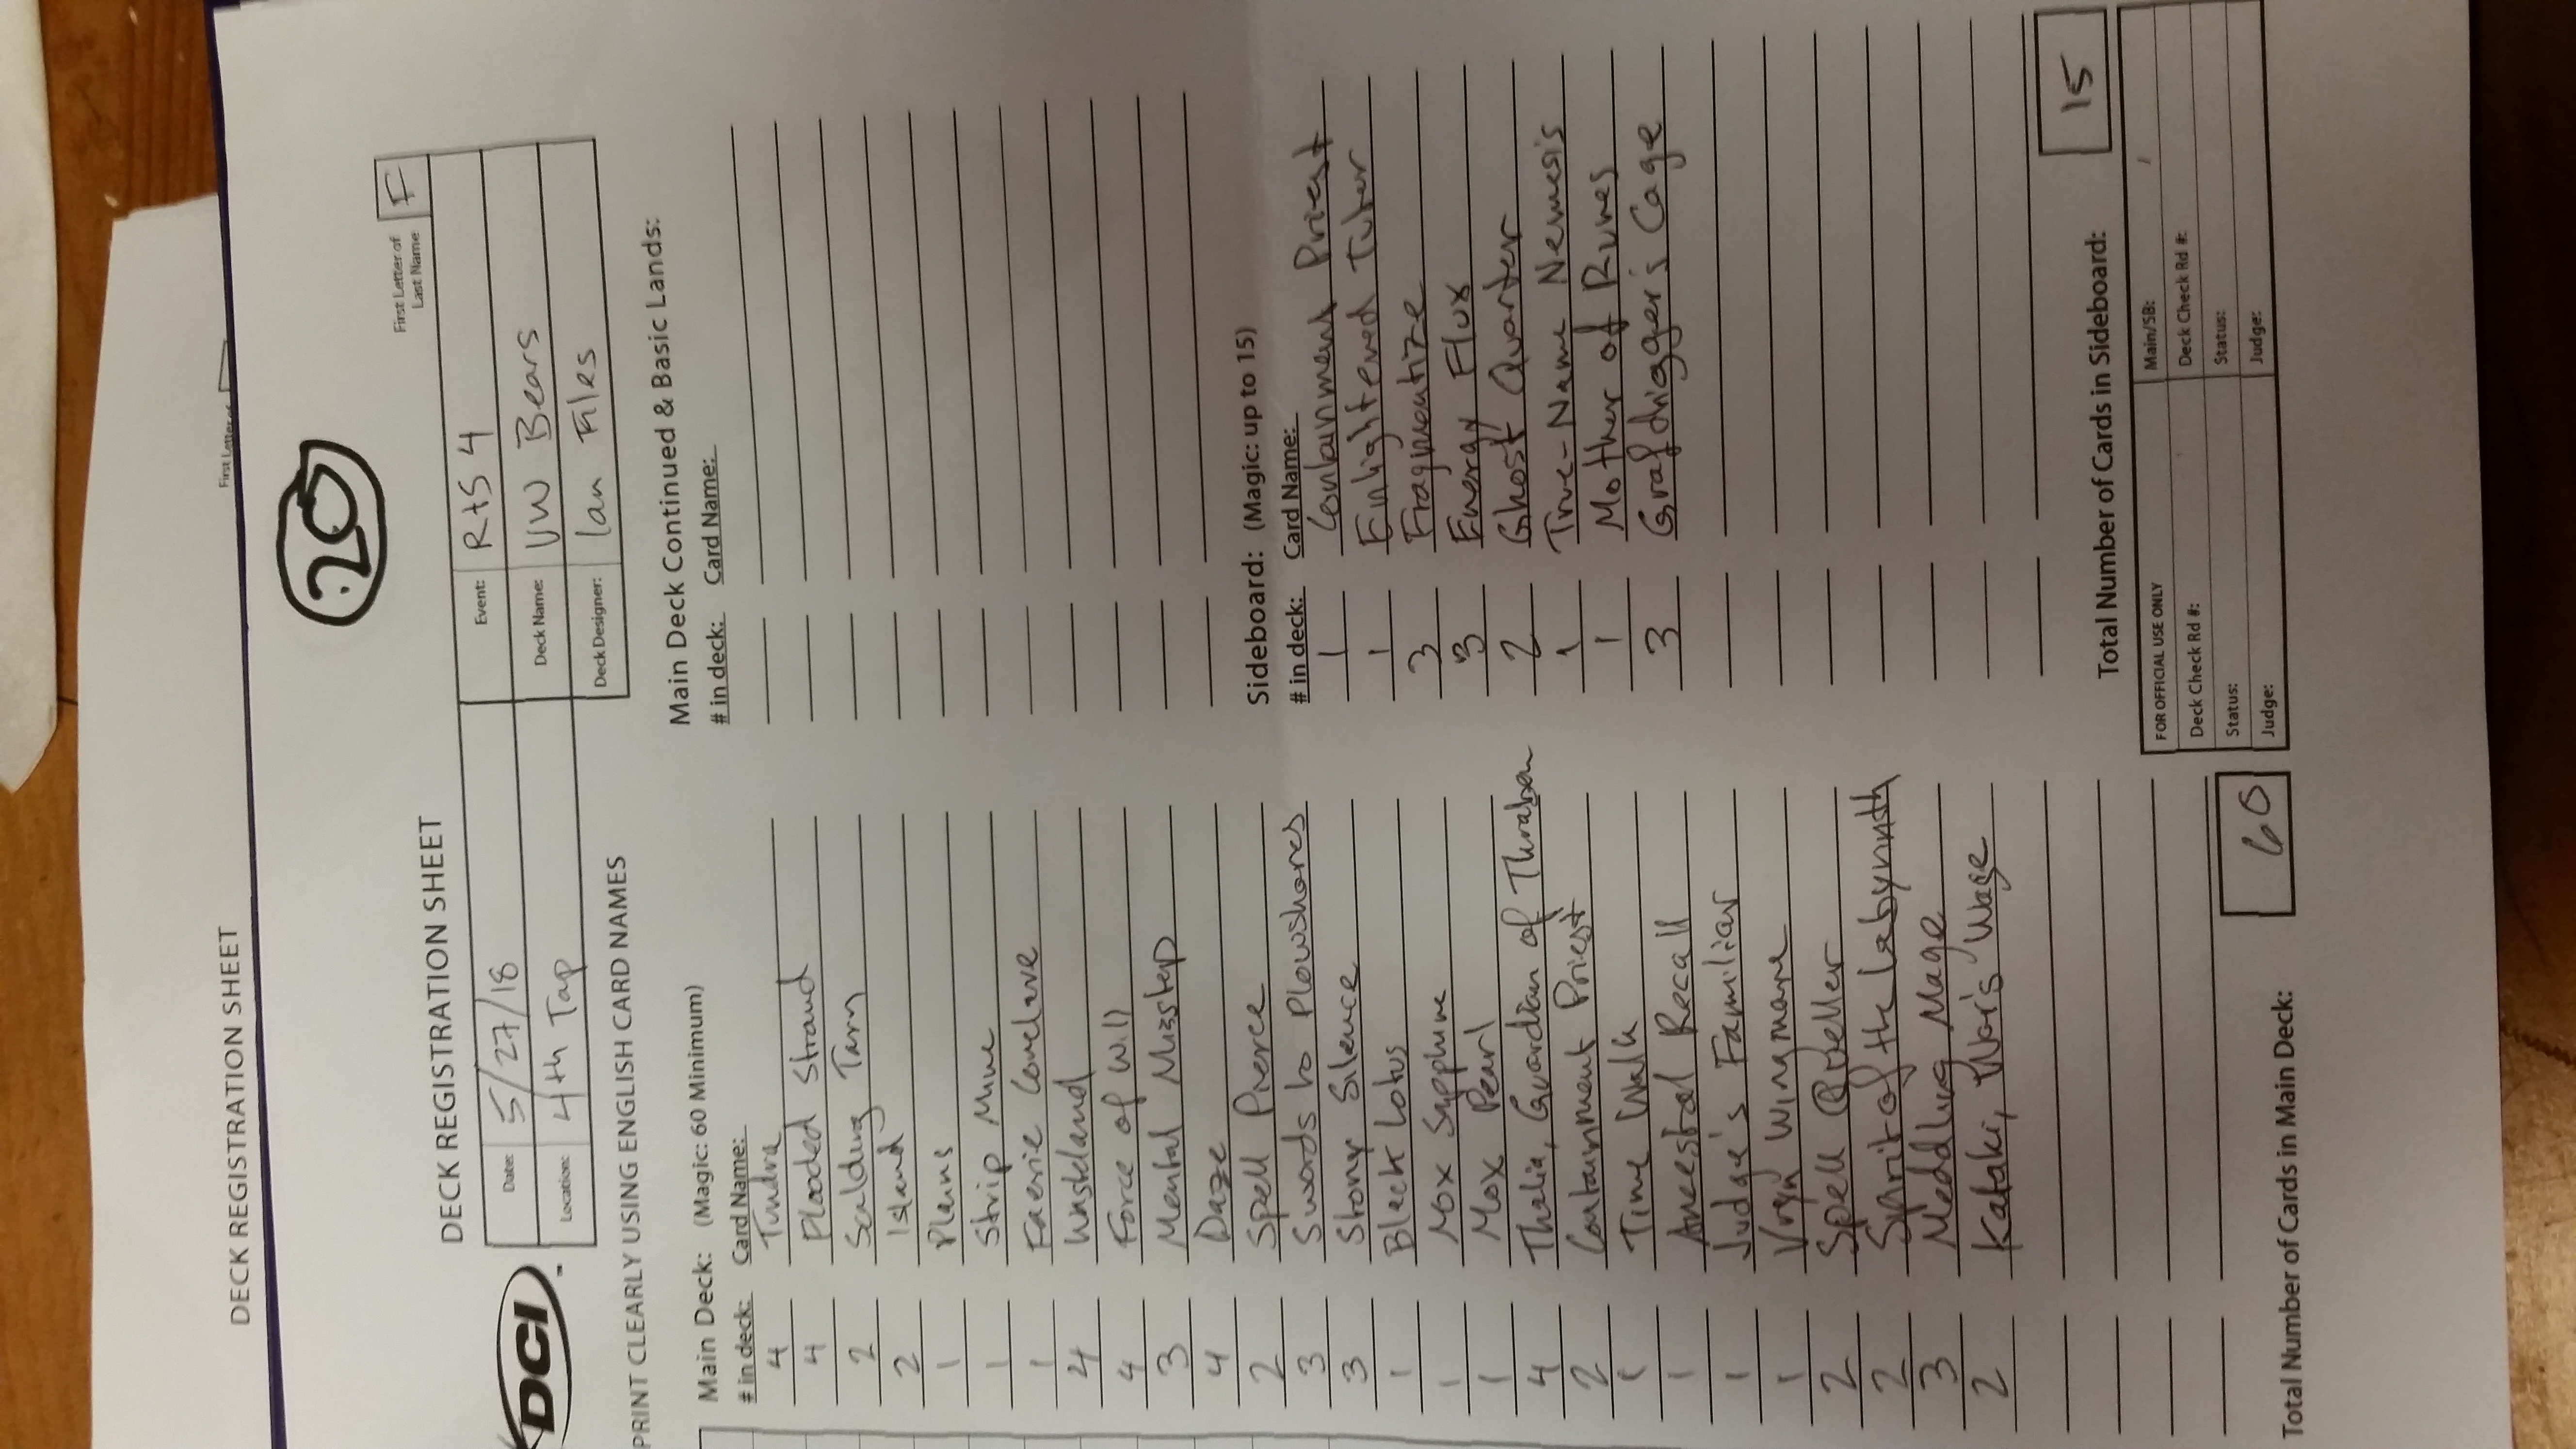 DECK REGISTRATION SHEET
First Letter of
20
First Letter of
Last Name
F
DECK REGISTRATION SHEET
DCI
Date: 5/27/18
Location: 4th Tap
Event: RtS 4
Deck Name: UW Bears
Deck Designer: Ian Files
PRINT CLEARLY USING ENGLISH CARD NAMES
Main Deck: (Magic: 60 Minimum)
# in deck: Card Name:
4 Tundra
4 Flooded Strand
2 Scalding Tarn
2 Island
1 Plains
1 Strip Mine
1 Faerie Conclave
4 Wasteland
4 Force of Will
3 Mental Misstep
4 Daze
2 Spell Pierce
3 Swords to Plowshares
3 Stony Silence
1 Black Lotus
1 Mox Sapphire
1 Mox Pearl
4 Thalia, Guardian of Thraben
2 Containment Priest
1 Time Walk
1 Ancestral Recall
1 Judge's Familiar
1 Vryn Wingmare
2 Spell Queller
2 Spirit of the Labyrinth
3 Meddling Mage
2 Kataki, War's Wage
Total Number of Cards in Main Deck: 60
Main Deck Continued & Basic Lands:
# in deck: Card Name:
Sideboard: (Magic: up to 15)
# in deck: Card Name:
1 Containment Priest
1 Enlightened Tutor
3 Fragmentize
3 Energy Flux
2 Ghost Quarter
1 True-Name Nemesis
1 Mother of Runes
3 Grafdigger's Cage
Total Number of Cards in Sideboard: 15
FOR OFFICIAL USE ONLY
Main/SB:
Deck Check Rd #:
Deck Check Rd #:
Status:
Status:
Judge:
Judge: